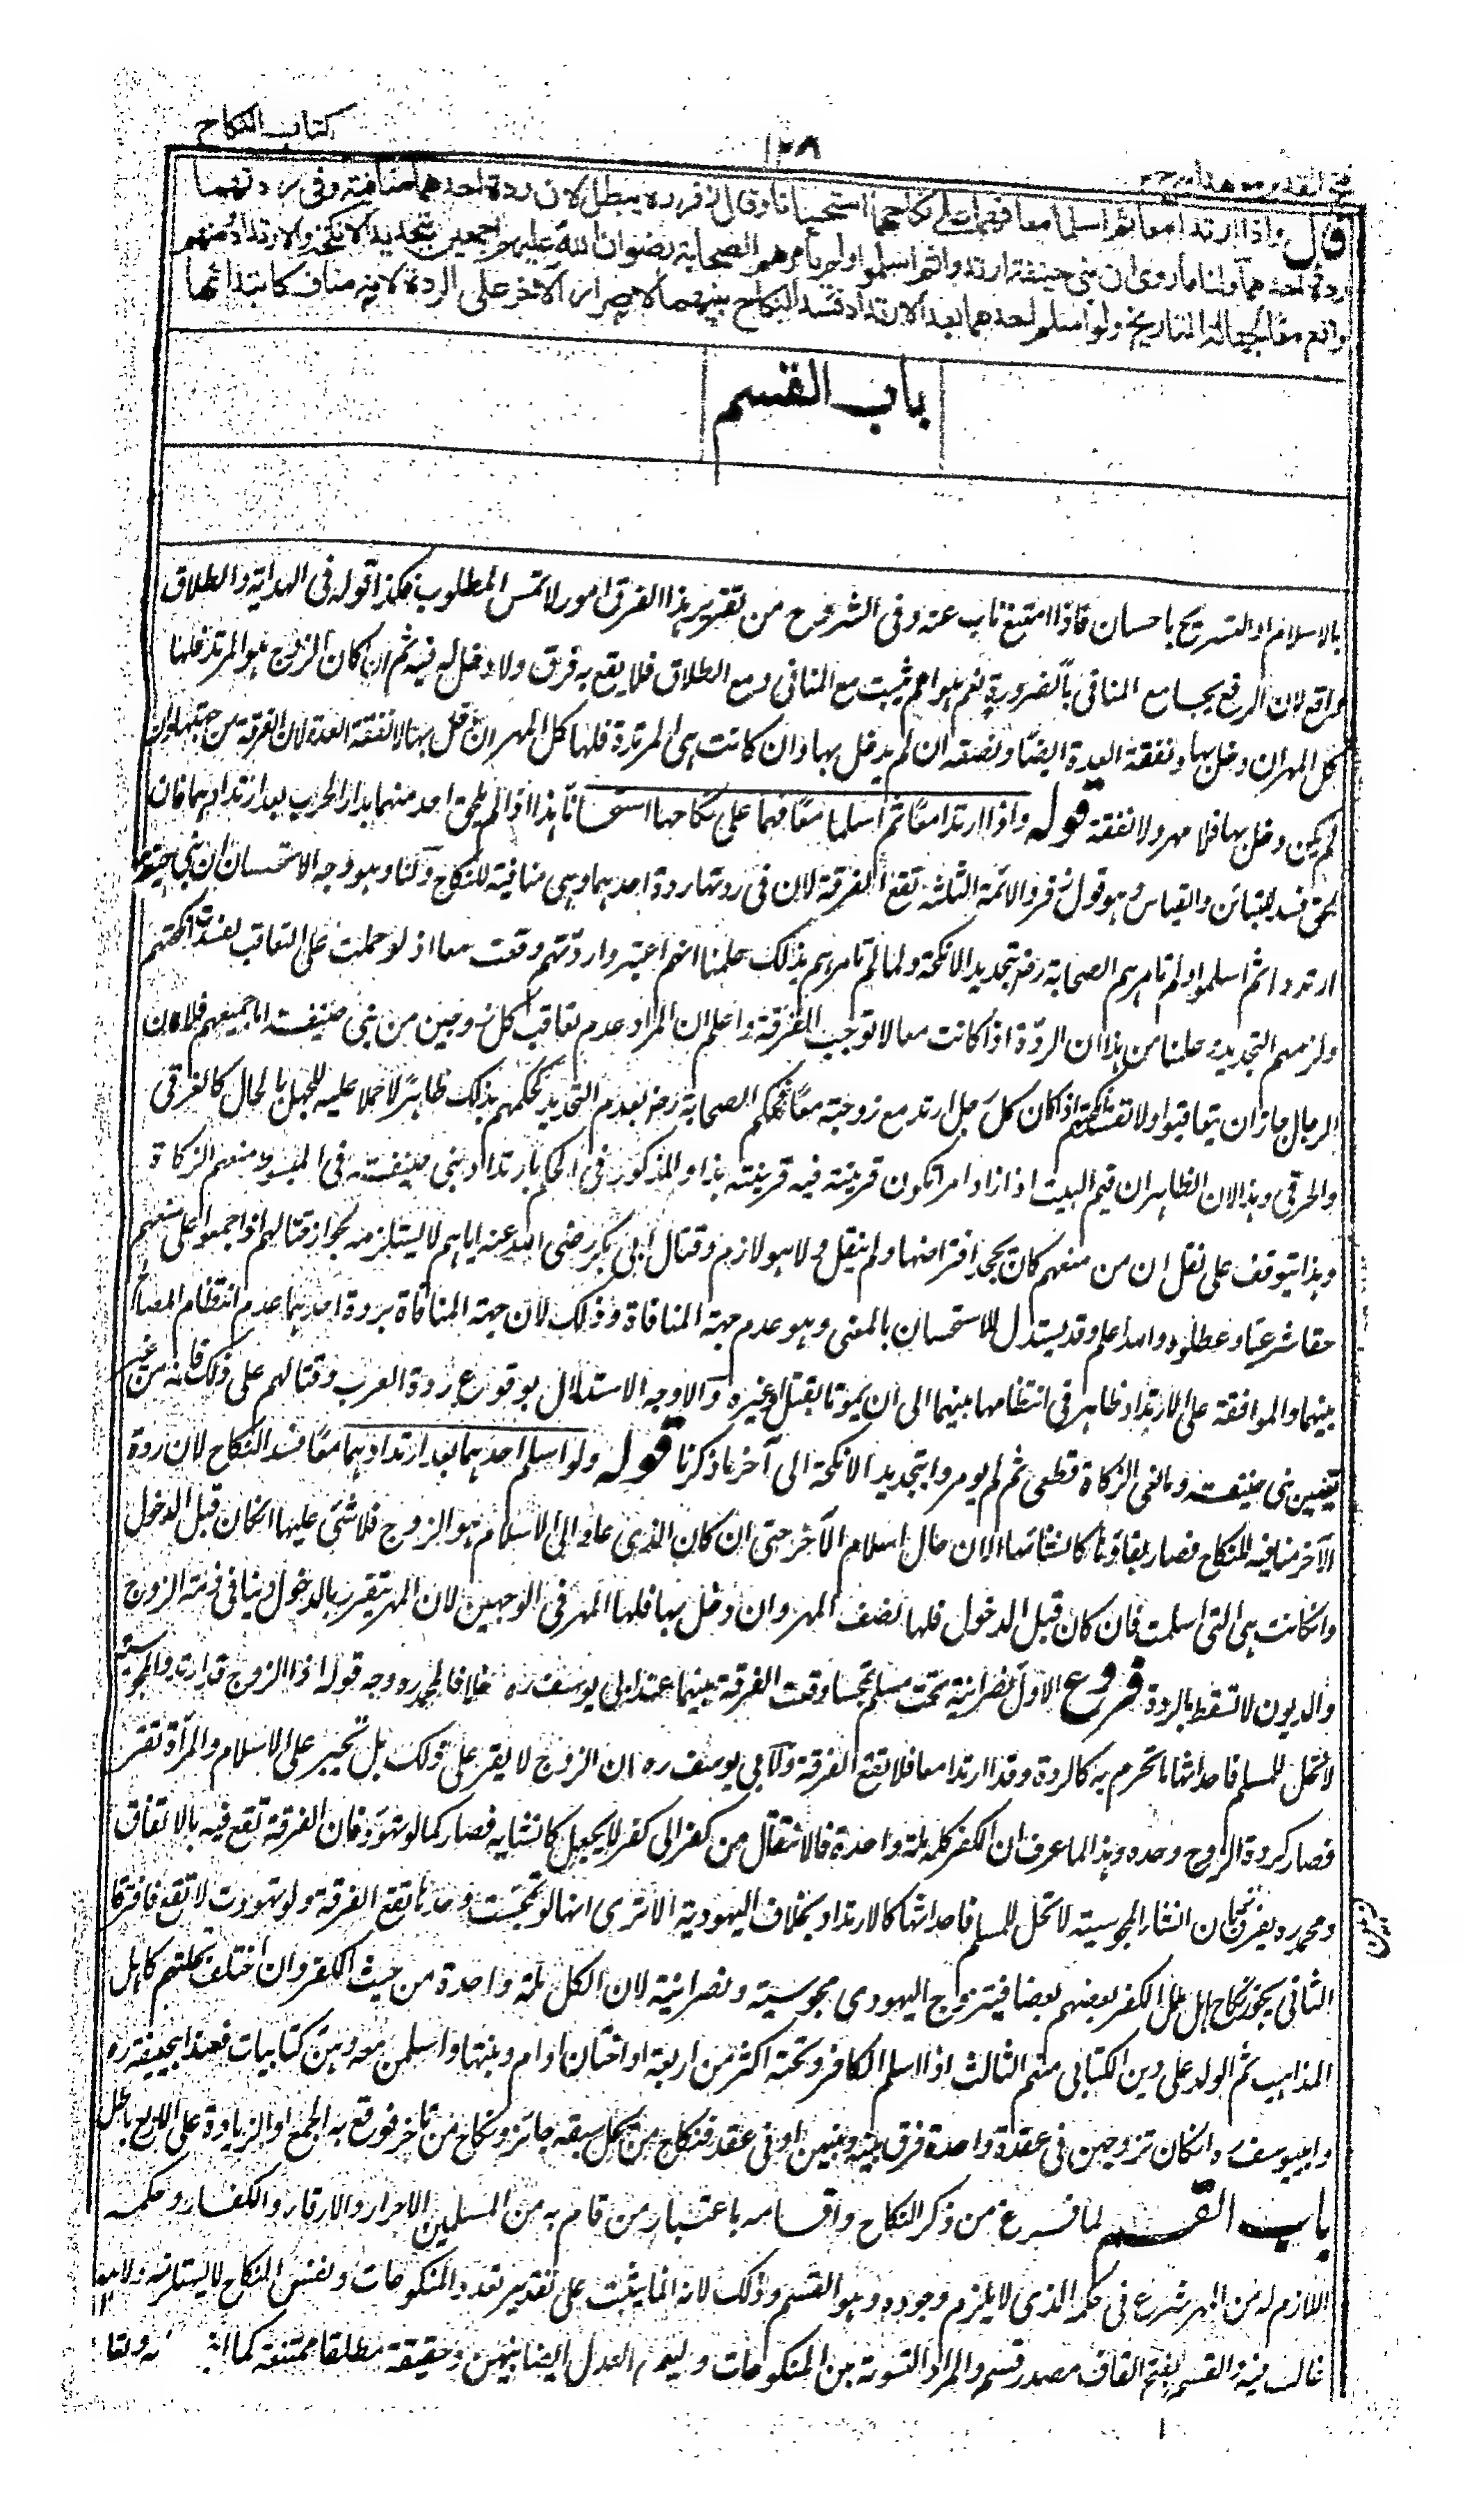 كتاب النكاح
١٢٨
فتح القدير مع هداية ج٢
قال واذا ارتدا معا ثم اسلما معا فهما على نكاحهما استحسانا وقال زفر ره يبطل لان ردة احدهما منافية وفي ردتهما
ردة احدهما ولنا ما روى ان بنى حنيفة ارتدوا ثم اسلموا ولم يأمرهم الصحابة رضوان الله عليهم اجمعين بتجديد الانكحة والارتداد منهم
واقع معا لجهالة التاريخ ولو اسلم احدهما بعد الارتداد فسد النكاح بينهما لاصرار الآخر على الردة لانه مناف كابتدائها
باب القسم
بالاسلام او التسريح باحسان فاذا امتنع ناب عنه وفى الشروح من تقرير هذا الفرق امور لا تمس المطلوب هكذا قوله فى الهداية والطلاق
رافع لان الرفع يجامع المنافى بالضرورة نعم هو اعم يثبت مع المنافى ومع الطلاق فلا يقع به فرق ولا دخل له فيه ثم ان كان الزوج هو المرتد فلها
كل المهر ان دخل بها ونفقة العدة ايضا ونصفه ان لم يدخل بها وان كانت هى المرتدة فلها كل المهر ان دخل بها لا نفقة العدة لان الفرقة من جهتها وان
لم يكن دخل بها فلا مهر ولا نفقة قوله واذا ارتدا معًا ثم اسلما معًا فهما على نكاحهما استحسانًا هذا اذا لم يلحق احد منهما بدار الحرب بعد ارتدادهما فان
لحق فسد للتباين والقياس وهو قول زفر والائمة الثلثة تقع الفرقة لان فى ردتهما ردة احدهما وهى منافية للنكاح ولنا وهو وجه الاستحسان ان بنى حنيفة
ارتدوا ثم اسلموا ولم تأمرهم الصحابة رضہ بتجديد الانكحة ولما لم تأمرهم بذلك علمنا انهم اعتبروا ردتهم وقعت معا اذ لو حملت على التعاقب لفسدت انكحتهم
ولزمهم التجديد علمنا من هذا ان الردة اذا كانت معا لا توجب الفرقة واعلم ان المراد عدم تعاقب كل زوجين من بنى حنيفة اما جميعهم فلا لان
الرجال جاز ان يتعاقبوا ولا تفسد انكحتهم اذا كان كل رجل ارتد مع زوجته معًا فحكم الصحابة رضہ بعدم التجديد لحكمهم بذلك ظاهرًا لا حملا عليه للجهل بالحال كالغرقى
والحرقى وهذا لان الظاهر ان قيم البيت اذا اراد امرا تكون قرينته فيه قرينته هذا والمذكور فى الحكم بارتداد بنى حنيفة فى المبسوط منعهم الزكاة
وهذا يتوقف على نقل ان من منعهم كان يجحد افتراضها ولم ينقل ولا هو لازم وقتال ابى بكر رضى الله عنه اياهم لا يستلزمه لجواز قتالهم اذا اجمعوا على منعهم
حقا شرعيًا وعطلوه والله اعلم وقد يستدل للاستحسان بالمعنى وهو عدم جهة المنافاة وذلك لان جهة المنافاة بردة احدهما عدم انتظام المصالح
بينهما والموافقة على الارتداد ظاهر فى انتظامها بينهما الى ان يموتا بقتل او غيره والاوجه الاستدلال بوقوع ردة العرب وقتالهم على ذلك فانه من غير
تعيين بنى حنيفة ومانعى الزكاة قطعى ثم لم يومروا بتجديد الانكحة الى آخر ما ذكرنا قوله ولو اسلم احدهما بعد ارتدادهما معًا فسد النكاح لان ردة
الآخر منافية للنكاح فصار بقاؤها كانشائها الان حال اسلام الآخر حتى ان كان الذى عاد الى الاسلام هو الزوج فلا شئ عليها انكان قبل الدخول
وانكانت هى التى اسلمت فان كان قبل الدخول فلها نصف المهر وان دخل بها فلها المهر فى الوجهين لان المهر يتقرر بالدخول دينا فى ذمة الزوج
والديون لا تسقط بالردة فروع الاول نصرانية تحت مسلم تمجسا وقعت الفرقة بينهما عند ابى يوسف ره خلافا لمحمد ره وجه قوله اذ الزوج قد ارتد والمجوسية
لا تحل للمسلم فاحداثها ما تحرم به كالردة وقد ارتدا معا فلا تقع الفرقة ولابى يوسف ره ان الزوج لا يقر على ذلك بل يجبر على الاسلام والمرأة تقر
فصار كردة الزوج وحده وهذا لما عرف ان الكفر كله ملة واحدة فالانتقال من كفر الى كفر لا يجعل كانشائه فصار كما لو تهود فان الفرقة تقع فيه بالاتفاق
ومحمد ره يفرق بان انشاء المجوسية لا تحل للمسلم فاحداثها كالارتداد بخلاف اليهودية الا ترى انها لو تمجست وحدها تقع الفرقة ولو تهودت لا تقع فافترقا
الثانى يجوز نكاح اهل ملل الكفر بعضهم بعضا فيتزوج اليهودى مجوسية ونصرانية لان الكل ملة واحدة من حيث الكفر وان اختلفت ملتهم كاهل
المذاهب ثم الولد على دين الكتابى منهم الثالث اذا اسلم الكافر وتحته اكثر من اربعة او اختان او ام وبنتها واسلمن معه وهن كتابيات فعند ابيحنيفة ره
وابيوسف ره انكان تزوجهن فى عقدة واحدة فرق بينه وبينهن او فى عقد فنكاح من يحل سبقه جائز ونكاح من تاخر فوقع به الجمع او الزيادة على الاربع باطل
باب القسم لما فرغ من ذكر النكاح واقسامه باعتبار من قام به من المسلمين الاحرار والارقاء والكفار وحكمه
اللازم له من المهر شرع فى حكمه الذى لا يلزم وجوده وهو القسم وذلك لانه انما يثبت على تقدير تعدد المنكوحات ونفس النكاح لا يستلزمه ولا هو
غالب فيه والقسم بفتح القاف مصدر قسم والمراد التسوية بين المنكوحات ويسمى العدل ايضا بينهن وحقيقته مطلقا ممتنعة كما